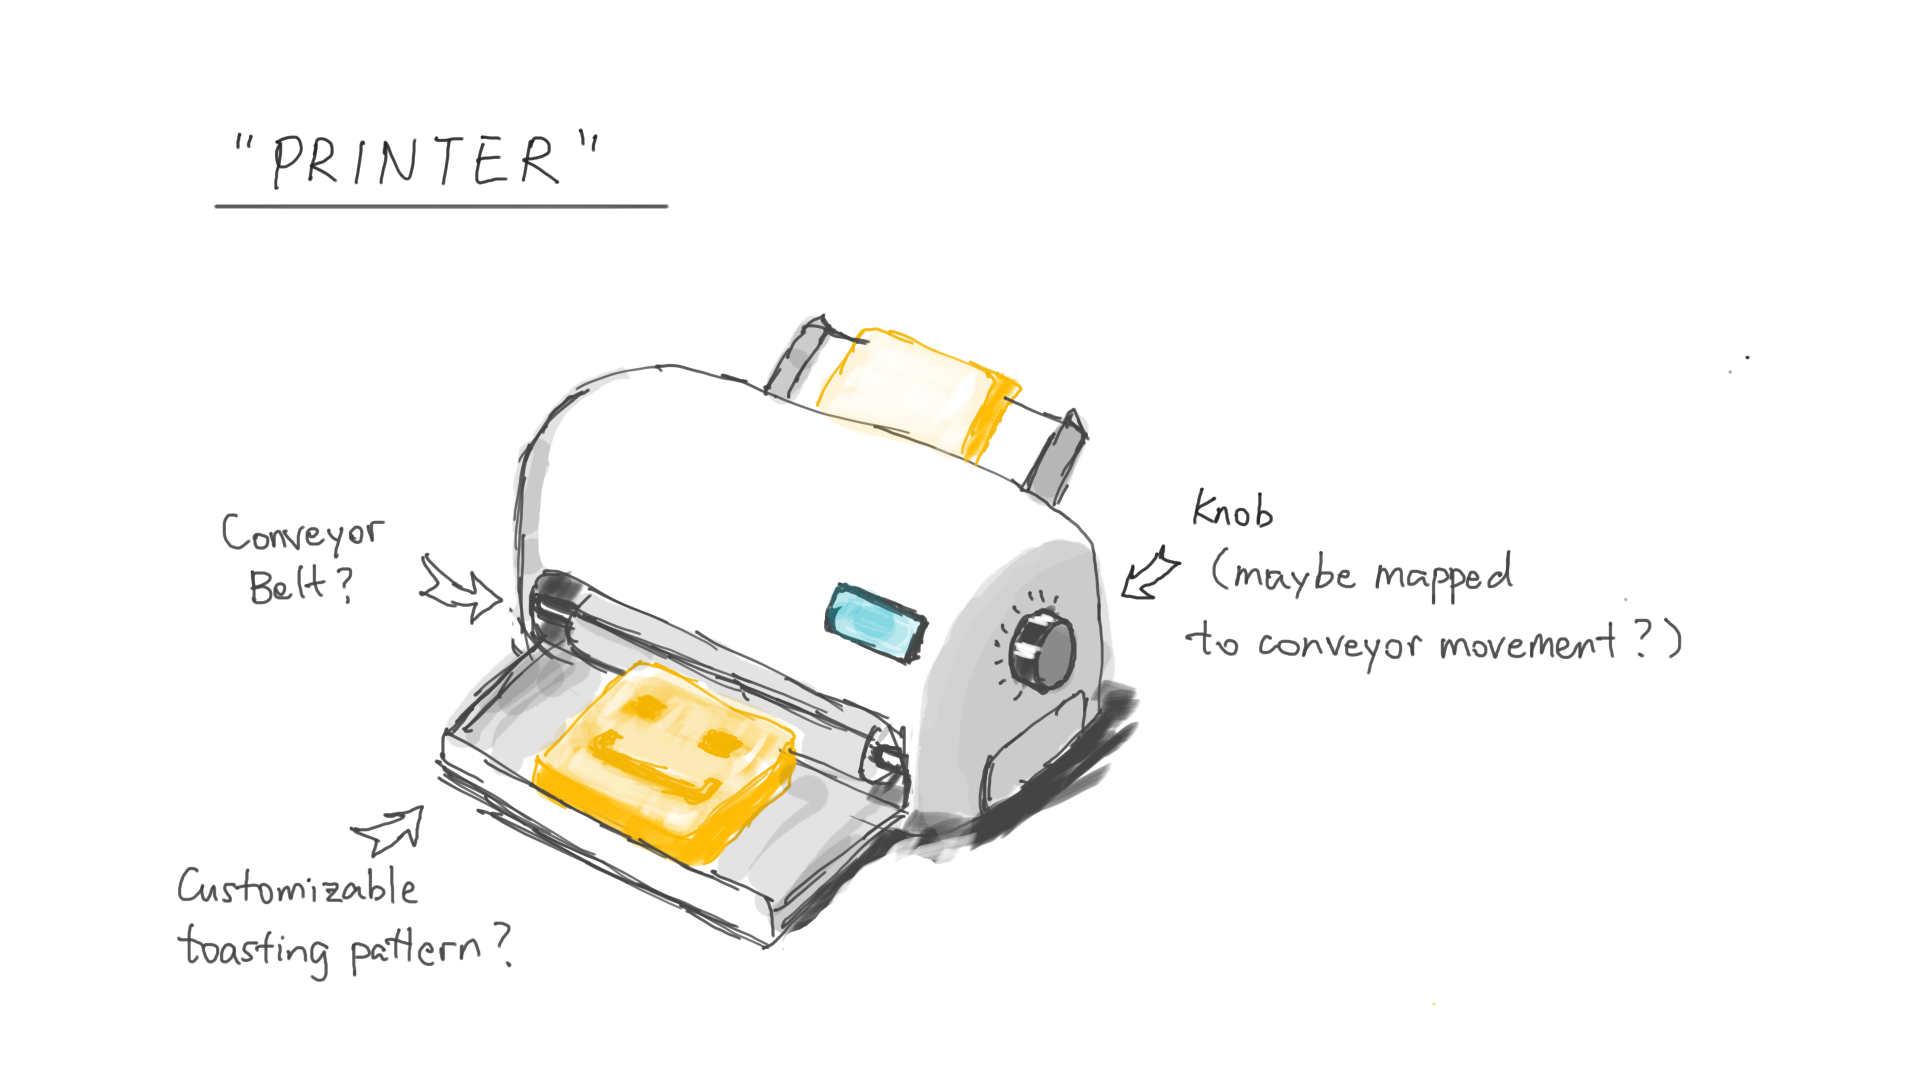 "PRINTER"
Conveyor
Belt?
Knob
(maybe mapped
to conveyor movement?)
Customizable
toasting pattern?